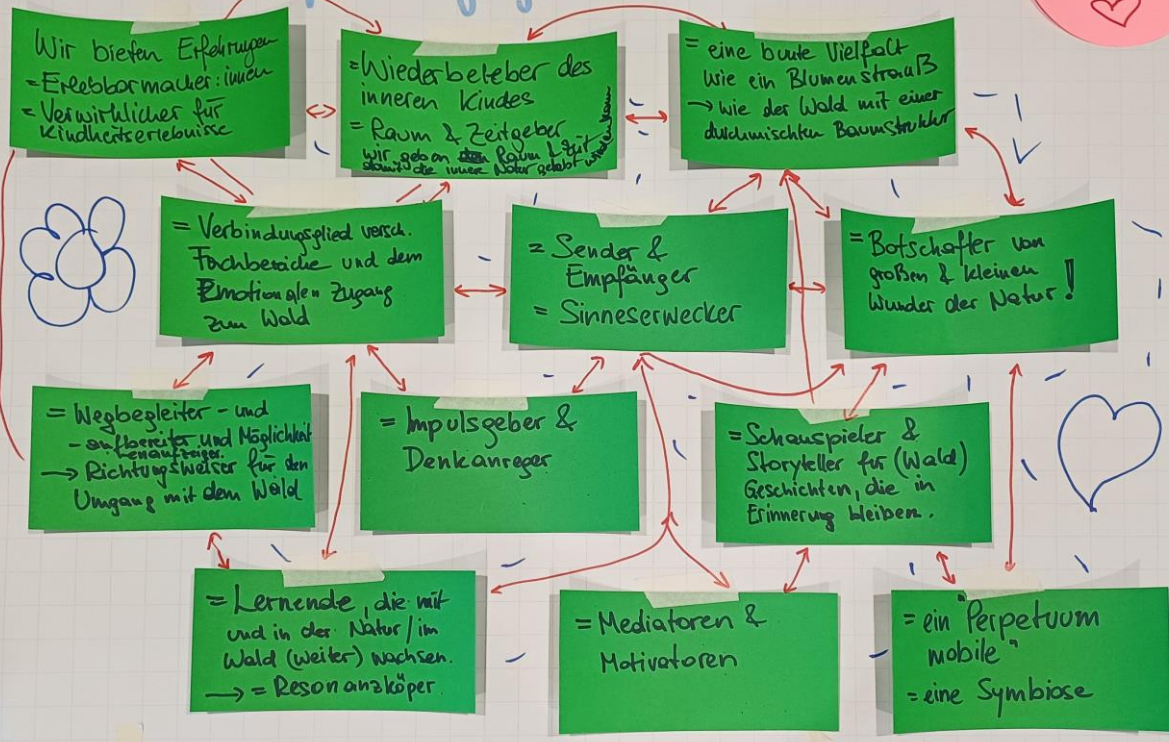 Wir bieten Erfahrungen
= Erlebbarmacher:innen
= Verwirklicher für
Kindheitserlebnisse
= Wiederbeleber des
inneren Kindes
= Raum & Zeitgeber
wir geben Raum & Zeit
damit die innere Natur gelebt werden kann
= eine bunte Vielfalt
wie ein Blumenstrauß
→ wie der Wald mit einer
durchmischten Baumstruktur
= Verbindungsglied versch.
Fachbereiche und dem
Emotionalen Zugang
zum Wald
= Sender &
Empfänger
= Sinneserwecker
= Botschafter von
großen & kleinen
Wunder der Natur!
= Wegbegleiter - und
- aufbereiter und Möglichkeit
tenaufzeiger.
→ Richtungsweiser für den
Umgang mit dem Wald
= Impulsgeber &
Denkanreger
= Schauspieler &
Storyteller für (Wald)
Geschichten, die in
Erinnerung bleiben.
= Lernende, die mit
und in der Natur/im
Wald (weiter) wachsen.
→ = Resonanzköper
= Mediatoren &
Motivatoren
= ein "Perpetuum
mobile"
= eine Symbiose